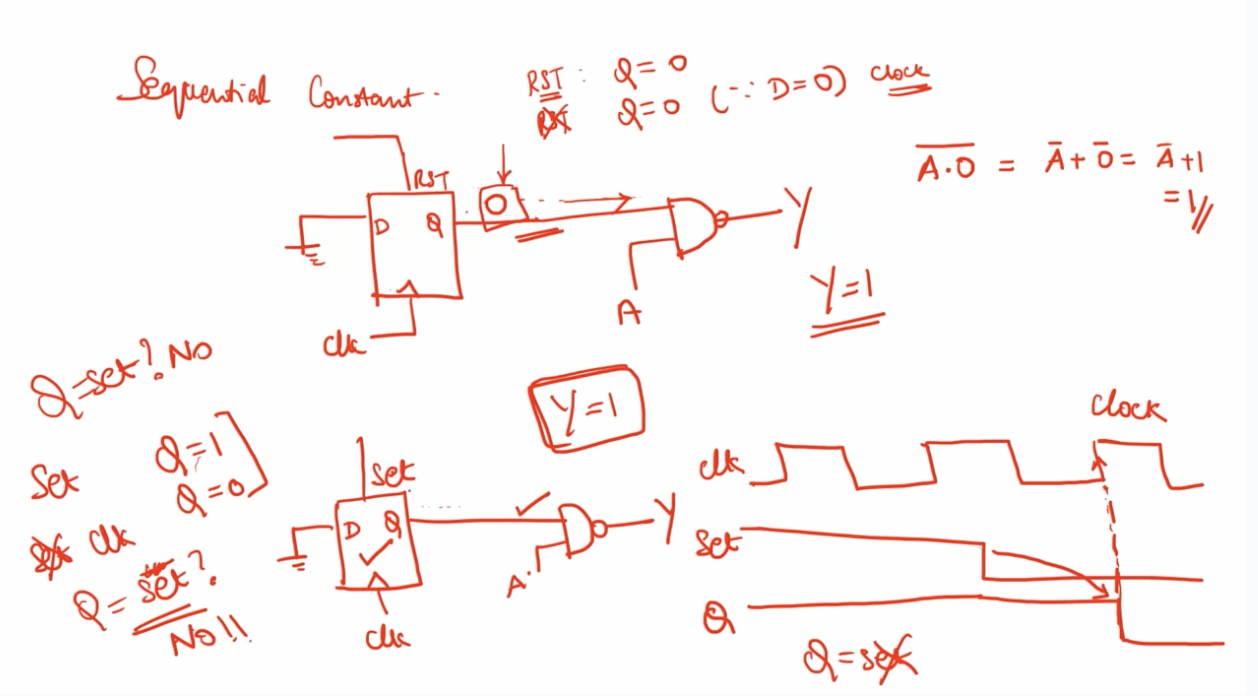 Sequential Constant.
RST : Q = 0
Q = 0 (∵ D = 0) clock
A̅·̅0̅ = A̅ + 0̅ = A̅ + 1
= 1
RST
D Q
0
clk
A
Y
Y = 1
Q = set? NO
Y = 1
Set Q = 1
Q = 0
clk
Q = set?
NO!!
set
D Q
clk
A
Y
clock
clk
set
Q
Q = set